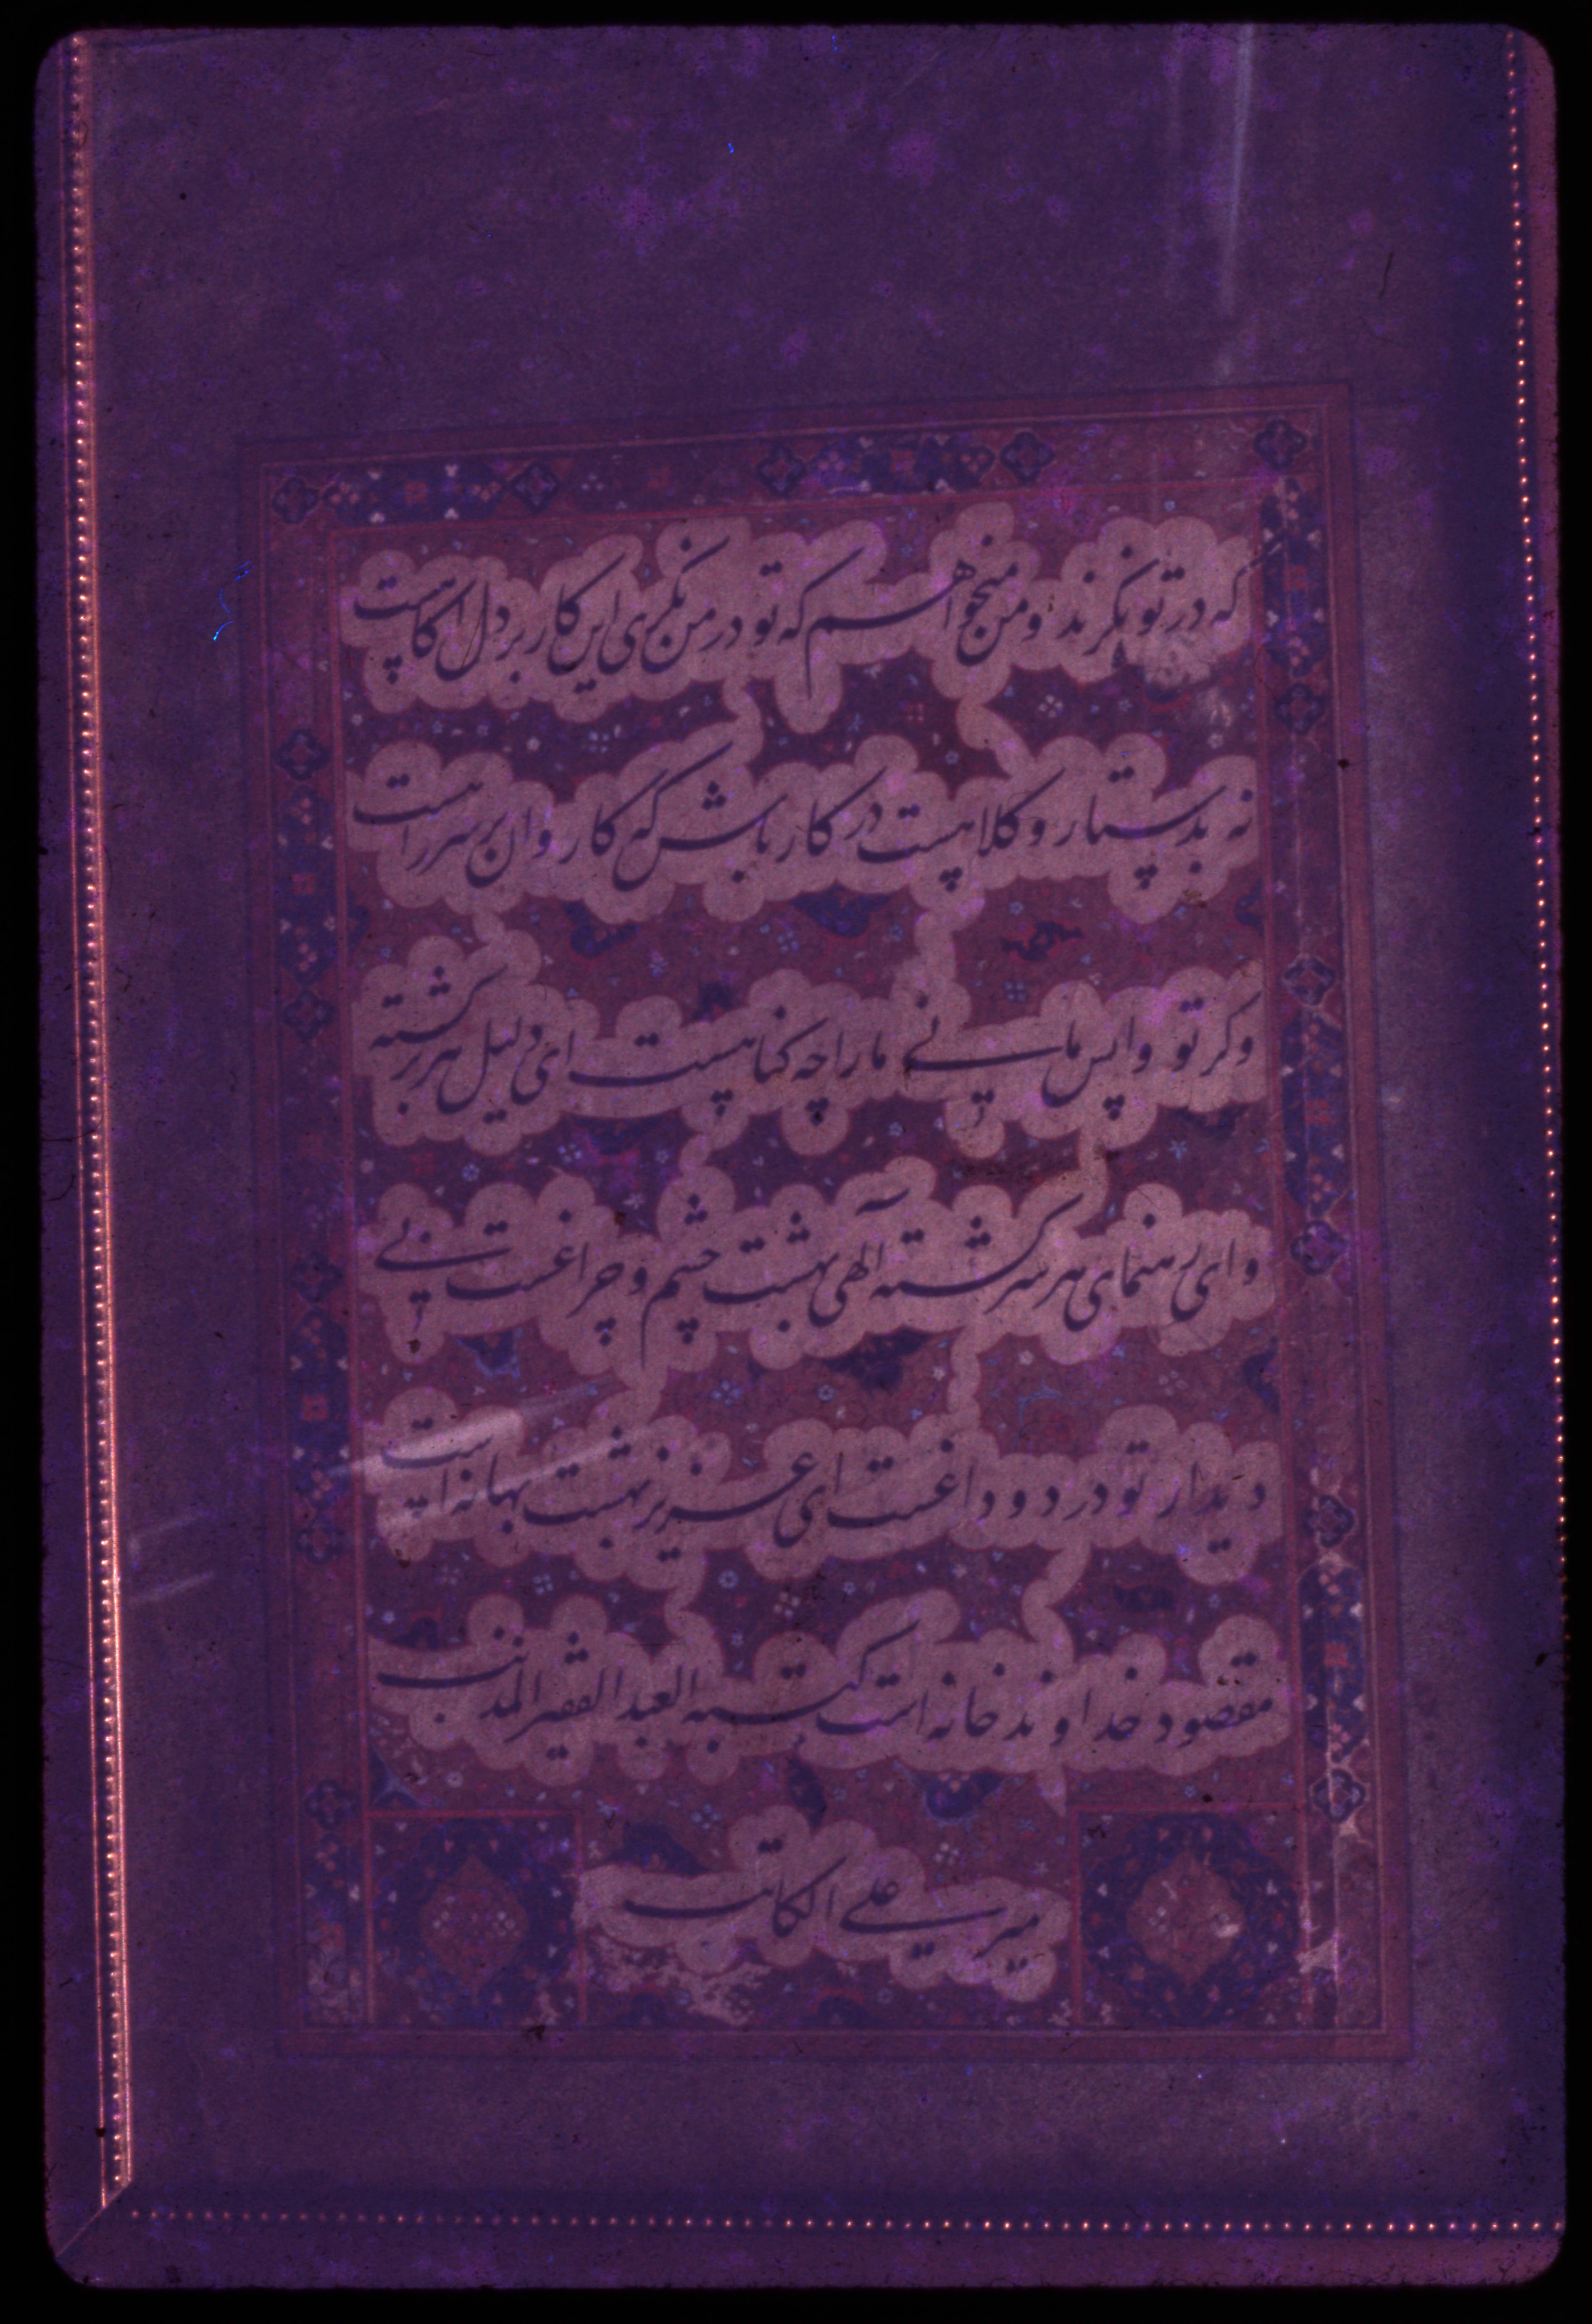 که در تو نگرند و من میخواهم که تو در من نگری این کار بر دل اکاهست
نه بدستار و کلاهست در کار باش که کاروان بر سر راهست
وکر تو واپس مانی ما را چه کناهست ای دلیل هر برکشته
و ای رهنمای هر سرکشته آلهی بهشت چشم و چراغست بی
دیدار تو درد و داغست ای عزیز بهشت بهانه است
مقصود خداوند خانه است کتبه العبد الفقیر المذنب
میر علی الکاتب